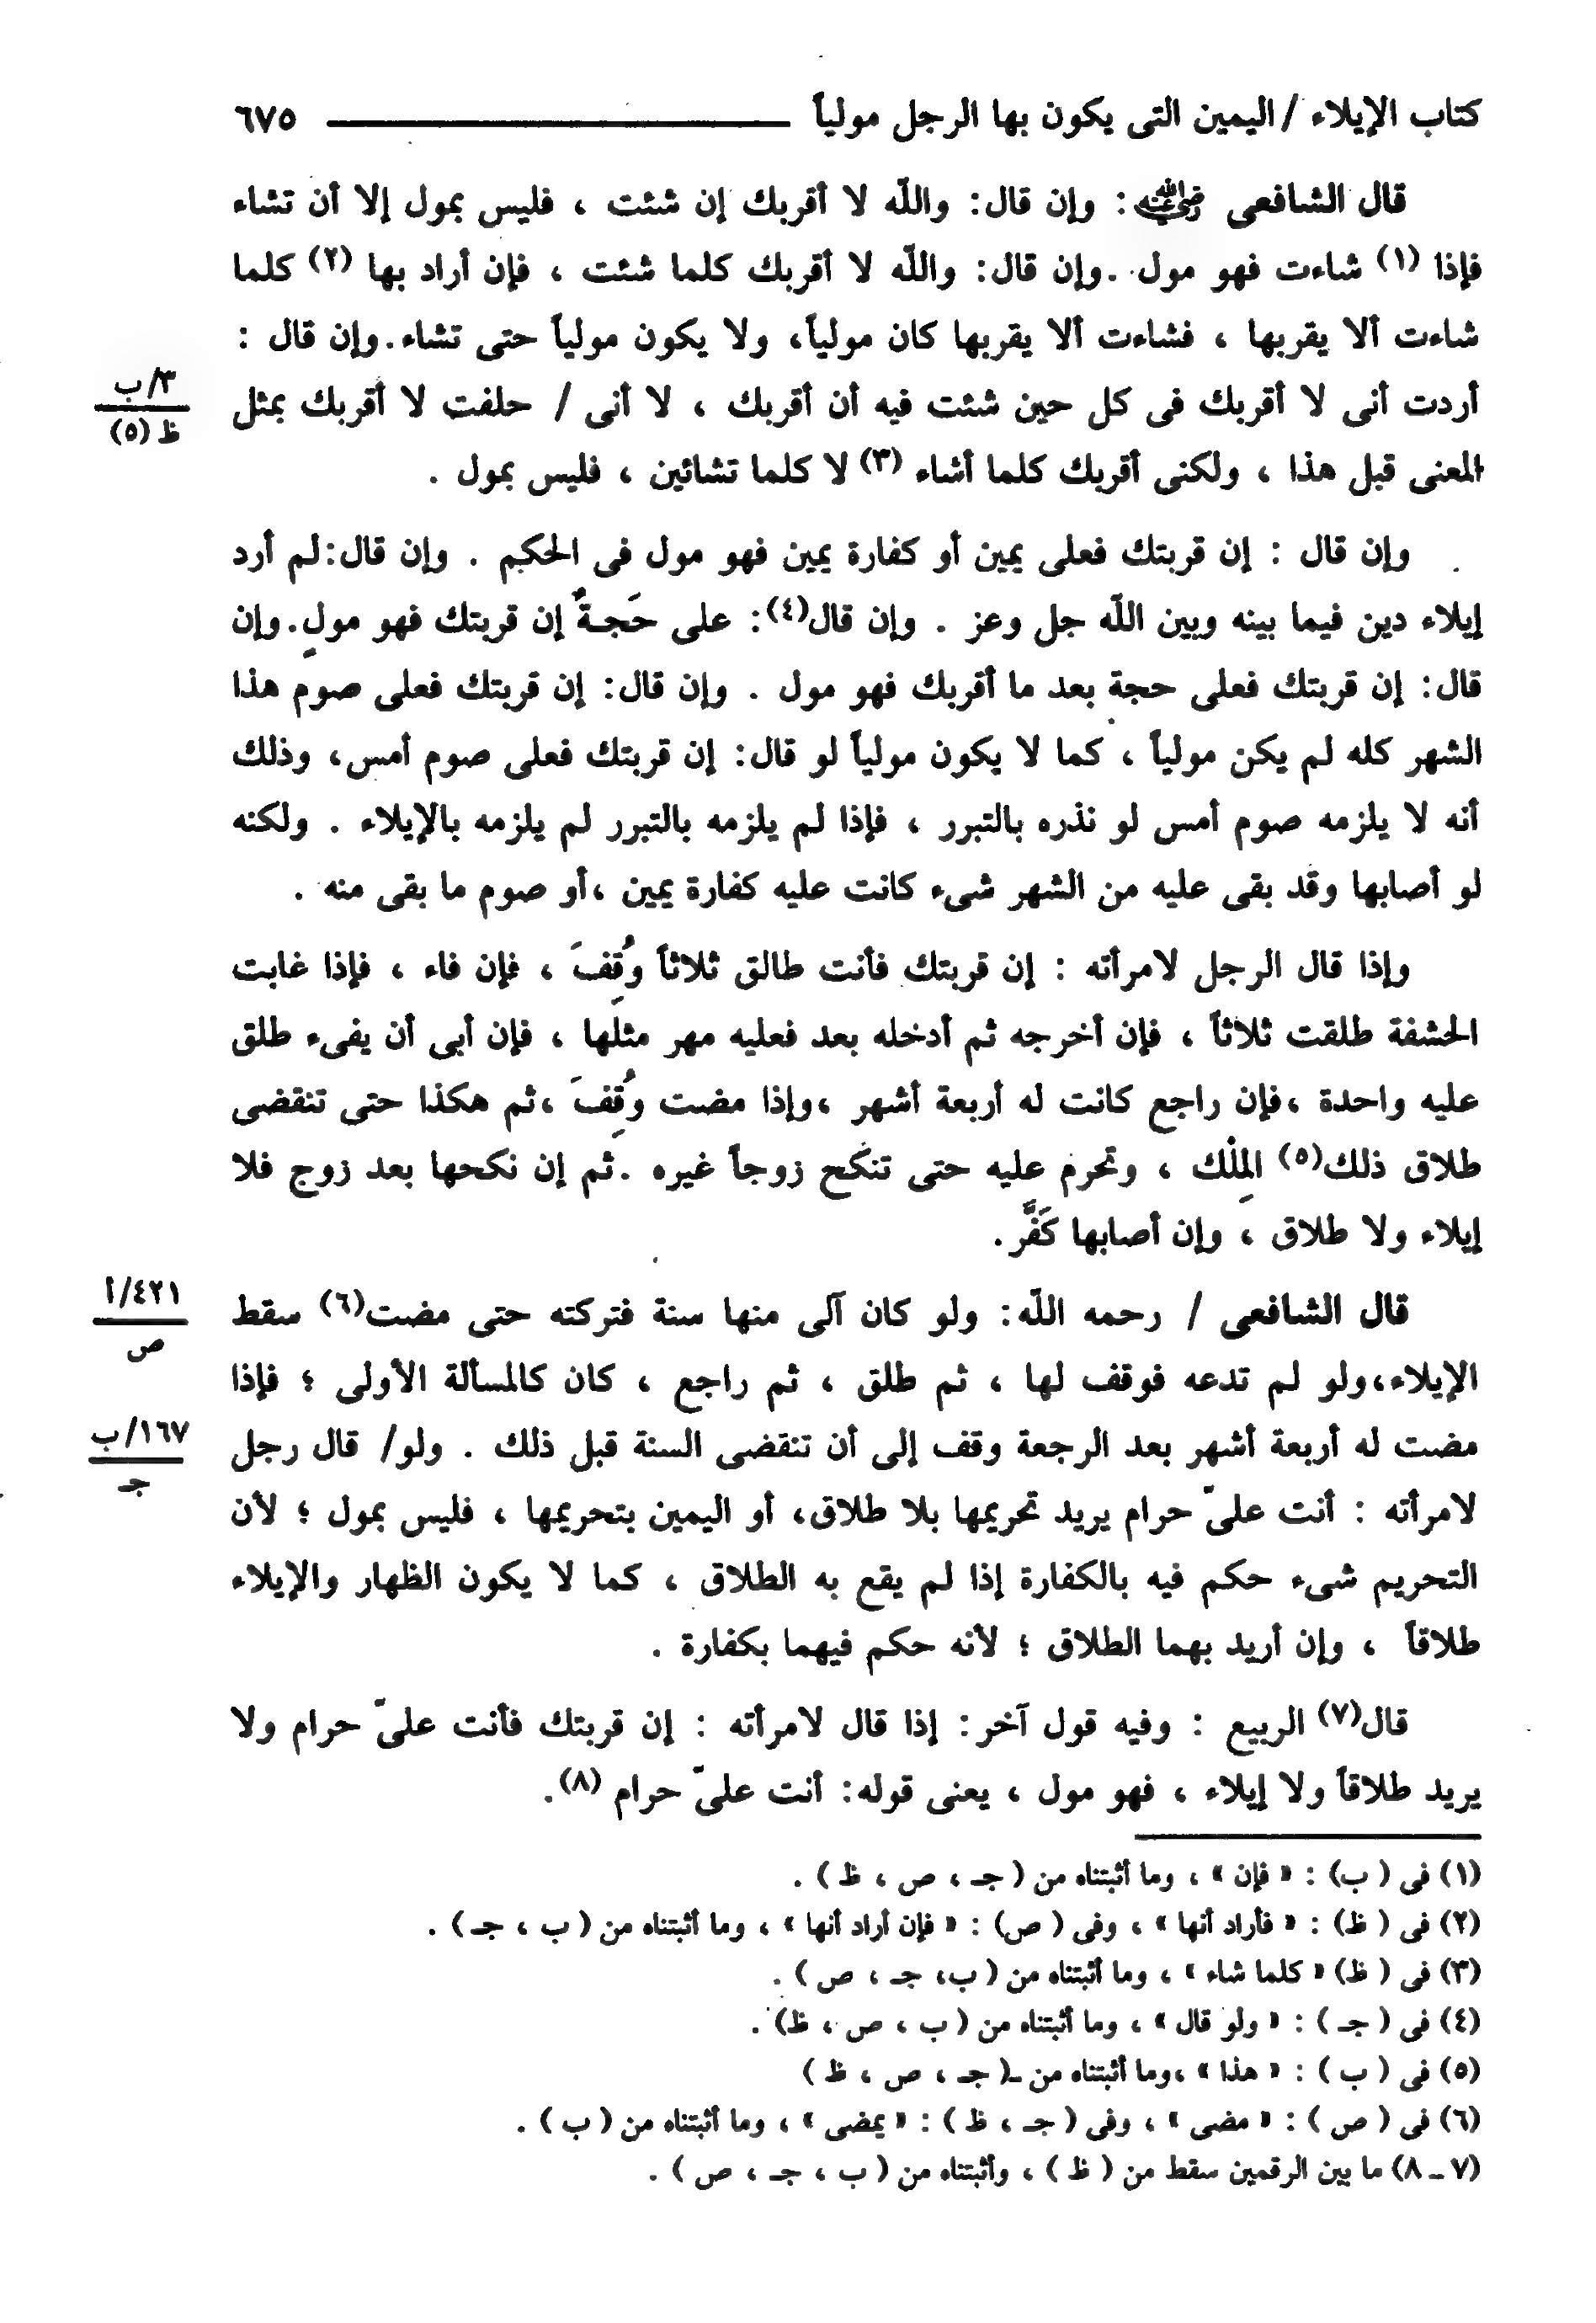 كتاب الإيلاء / اليمين التى يكون بها الرجل مولياً ٦٧٥
قال الشافعى رضي الله عنه : وإن قال: واللّه لا أقربك إن شئت ، فليس بمول إلا أن تشاء
فإذا (١) شاءت فهو مول .وإن قال: واللّه لا أقربك كلما شئت ، فإن أراد بها (٢) كلما
شاءت ألا يقربها ، فشاءت ألا يقربها كان مولياً، ولا يكون مولياً حتى تشاء.وإن قال :
أردت أنى لا أقربك فى كل حين شئت فيه أن أقربك ، لا أنى / حلفت لا أقربك بمثل
٣/ب
ظ (٥)
المعنى قبل هذا ، ولكنى أقربك كلما أشاء (٣) لا كلما تشائين ، فليس بمول .
وإن قال : إن قربتك فعلى يمين أو كفارة يمين فهو مول فى الحكم . وإن قال:لم أرد
إيلاء دين فيما بينه وبين اللّه جل وعز . وإن قال(٤): على حَجةٌ إن قربتك فهو مولٍ.وإن
قال: إن قربتك فعلى حجة بعد ما أقربك فهو مول . وإن قال: إن قربتك فعلى صوم هذا
الشهر كله لم يكن مولياً ، كما لا يكون مولياً لو قال: إن قربتك فعلى صوم أمس، وذلك
أنه لا يلزمه صوم أمس لو نذره بالتبرر ، فإذا لم يلزمه بالتبرر لم يلزمه بالإيلاء . ولكنه
لو أصابها وقد بقى عليه من الشهر شىء كانت عليه كفارة يمين ،أو صوم ما بقى منه .
وإذا قال الرجل لامرأته : إن قربتك فأنت طالق ثلاثاً وُقِفَ ، فإن فاء ، فإذا غابت
الحشفة طلقت ثلاثاً ، فإن أخرجه ثم أدخله بعد فعليه مهر مثلها ، فإن أبى أن يفىء طلق
عليه واحدة ،فإن راجع كانت له أربعة أشهر ،وإذا مضت وُقِفَ ،ثم هكذا حتى تنقضى
طلاق ذلك(٥) المِلْك ، وتحرم عليه حتى تنكح زوجاً غيره .ثم إن نكحها بعد زوج فلا
إيلاء ولا طلاق ، وإن أصابها كَفَّر.
قال الشافعى / رحمه اللّه: ولو كان آلى منها سنة فتركته حتى مضت(٦) سقط
٤٢١/أ
ص
الإيلاء،ولو لم تدعه فوقف لها ، ثم طلق ، ثم راجع ، كان كالمسألة الأولى ؛ فإذا
مضت له أربعة أشهر بعد الرجعة وقف إلى أن تنقضى السنة قبل ذلك . ولو/ قال رجل
١٦٧/ب
جـ
لامرأته : أنت علىّ حرام يريد تحريمها بلا طلاق، أو اليمين بتحريمها ، فليس بمول ؛ لأن
التحريم شىء حكم فيه بالكفارة إذا لم يقع به الطلاق ، كما لا يكون الظهار والإيلاء
طلاقاً ، وإن أريد بهما الطلاق ؛ لأنه حكم فيهما بكفارة .
قال(٧) الربيع : وفيه قول آخر: إذا قال لامرأته : إن قربتك فأنت علىّ حرام ولا
يريد طلاقاً ولا إيلاء ، فهو مول ، يعنى قوله: أنت علىّ حرام (٨).
(١) فى ( ب) : « فإن » ، وما أثبتناه من ( جـ ، ص ، ظ ) .
(٢) فى ( ظ) : « فأراد أنها » ، وفى ( ص) : « فإن أراد أنها » ، وما أثبتناه من ( ب ، جـ ) .
(٣) فى ( ظ) « كلما شاء » ، وما أثبتناه من ( ب، جـ ، ص ) .
(٤) فى ( جـ ) : « ولو قال » ، وما أثبتناه من ( ب ، ص ، ظ) .
(٥) فى ( ب ) : « هذا » ،وما أثبتناه من ـ( جـ ، ص ، ظ )
(٦) فى ( ص ) : « مضى » ، وفى ( جـ ، ظ ) : « يمضى » ، وما أثبتناه من ( ب ) .
(٧ ـ ٨) ما بين الرقمين سقط من ( ظ ) ، وأثبتناه من ( ب ، جـ ، ص ) .